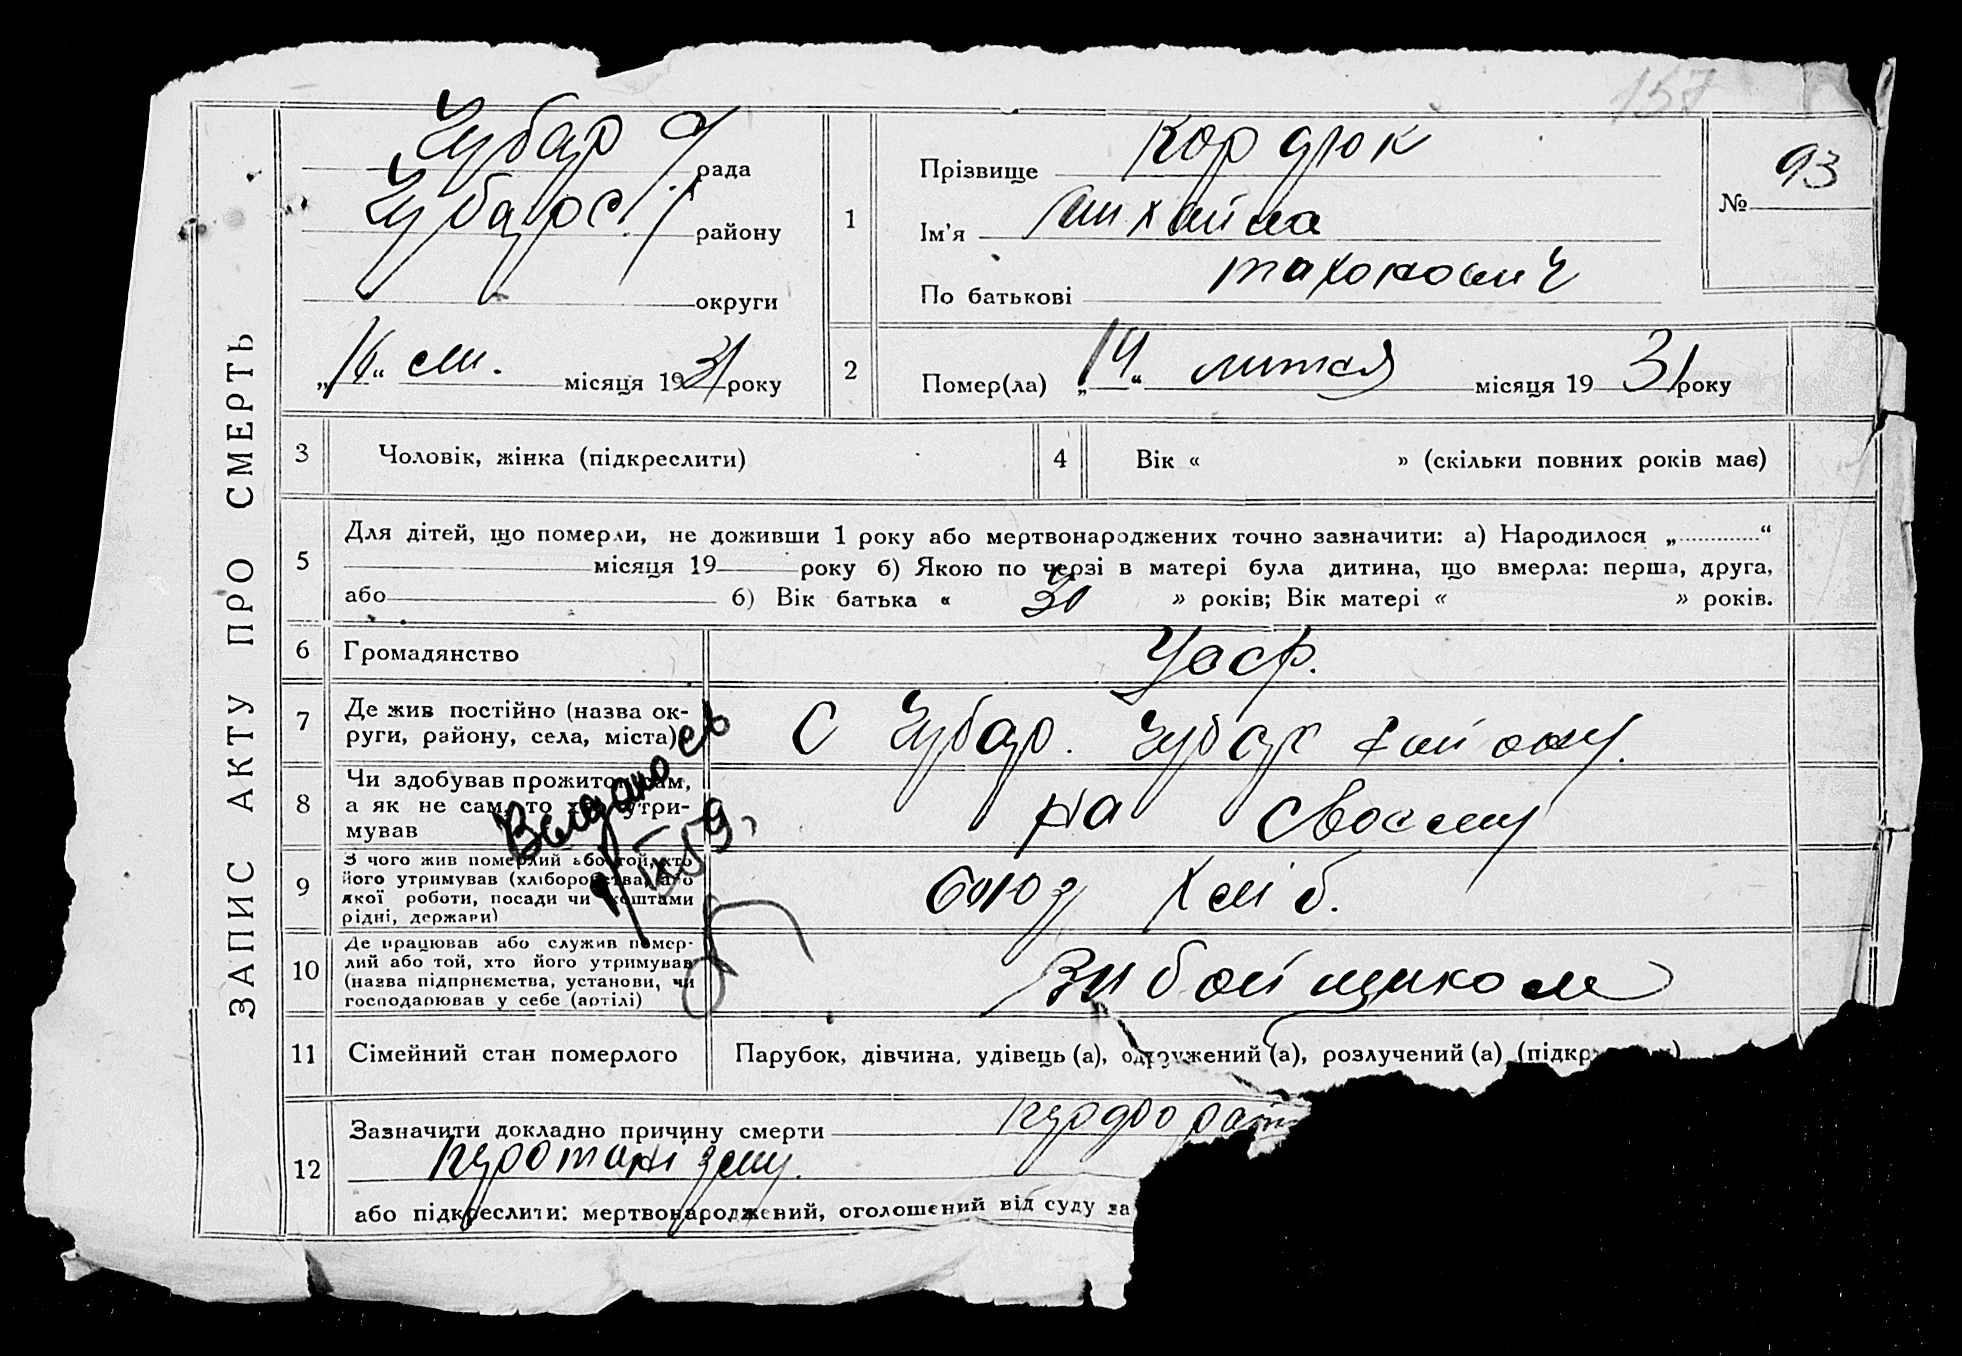 157
ЗАПИС АКТУ ПРО СМЕРТЬ
Чубар рада
Чубарс. району
округи
„16“ см. місяця 1931 року
1
Прізвище Кордюк
Ім'я Михайла
По батькові
№ 93
2
Помер(ла) „14“ лются місяця 1931 року
3 Чоловік, жінка (підкреслити)
4 Вік « » (скільки повних років має)
5
Для дітей, що померли, не доживши 1 року або мертвонароджених точно зазначити: а) Народилося „ “
місяця 19 року б) Якою по черзі в матері була дитина, що вмерла: перша, друга,
або б) Вік батька « 30 » років; Вік матері « » років.
6 Громадянство Усср.
7
Де жив постійно (назва ок-
руги, району, села, міста)
С Чубар. Чубар району.
8
Чи здобував прожиток сам,
а як не сам, то хто утри-
мував
на своему
9
З чого жив померлий або той, хто
його утримував (хліборобства, або
якої роботи, посади чи коштами
рідні, держави)
союз хліб.
10
Де працював або служив помер-
лий або той, хто його утримував
(назва підприємства, установи, чи
господарював у себе (артілі)
Вибойщиком
11 Сімейний стан померлого Парубок, дівчина, удівець (а), одружений (а), розлучений (а) (підкр
12
Зазначити докладно причину смерти
або підкреслити: мертвонароджений, оголошений від суду за
Выдано св
9/IX 59